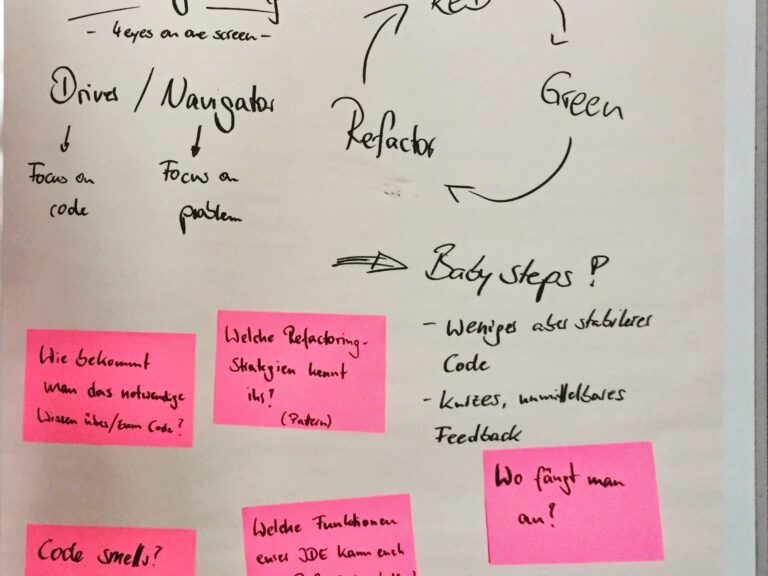 - 4 eyes on one screen -
Driver / Navigator
Focus on
code
Focus on
problem
RED
Green
Refactor
Baby steps?
- Weniger aber stabileres
Code
- kurzes, unmittelbares
Feedback
Wie bekommt
man das notwendige
Wissen über/zum Code?
Welche Refactoring-
Strategien kennt
ihr?
(Patern)
Wo fängt man
an?
Code smells?
Welche Funktionen
eurer IDE kann euch